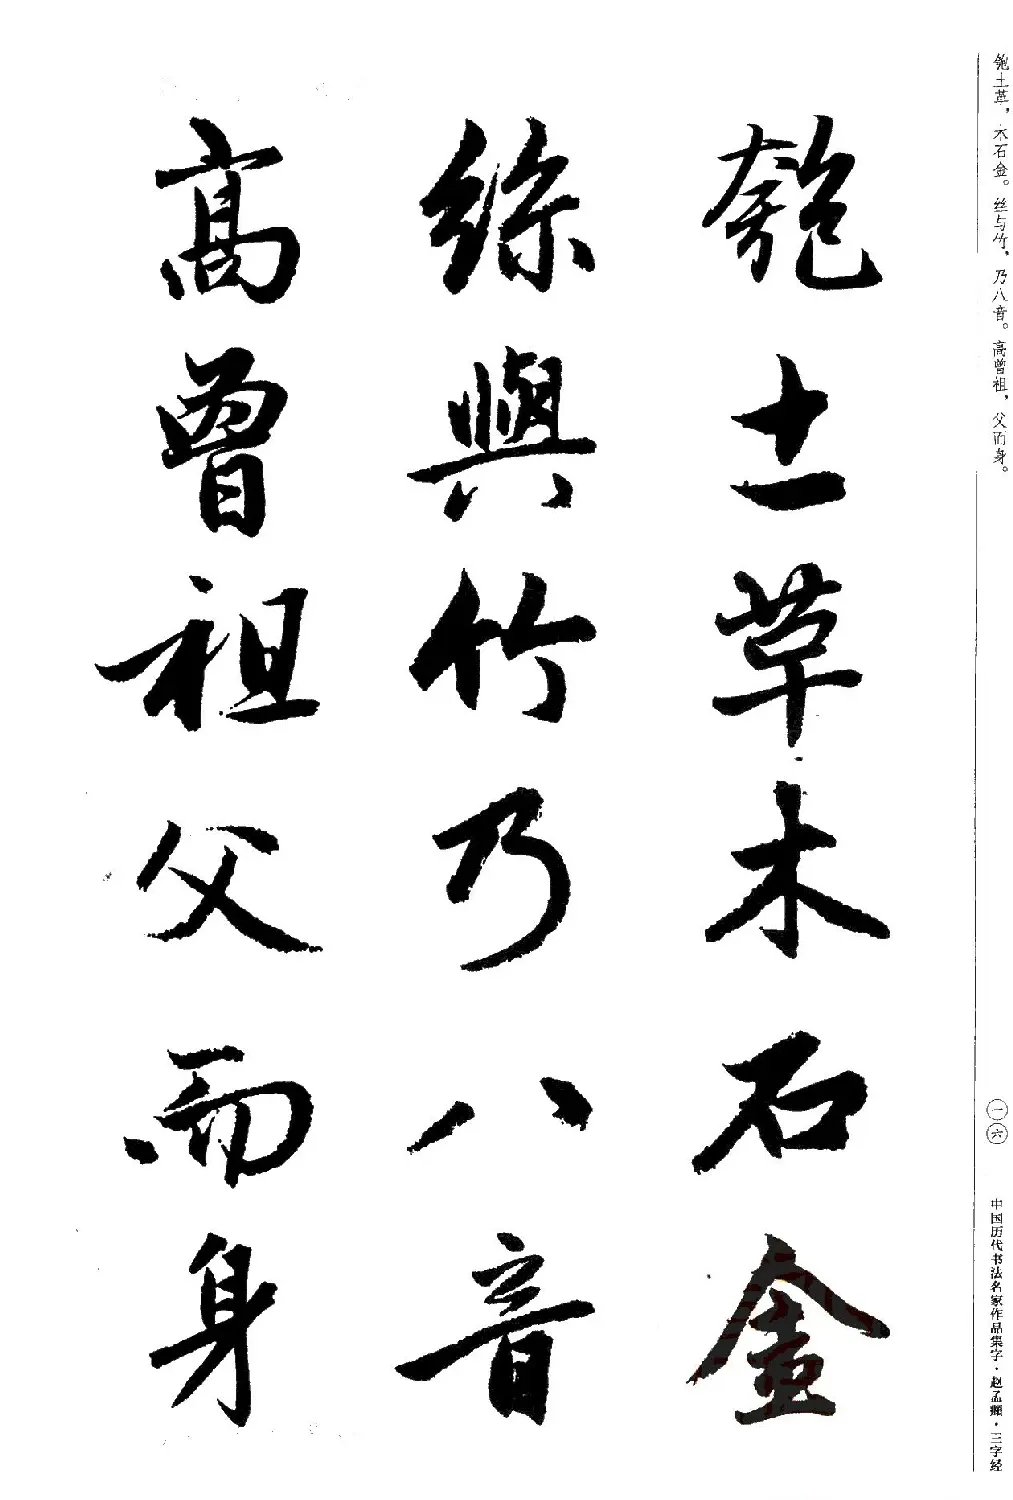 匏土革，木石金。丝与竹，乃八音。高曾祖，父而身。
一六
中国历代书法名家作品集字·赵孟頫·三字经
匏土草木石金
絲與竹乃八音
高曾祖父而身